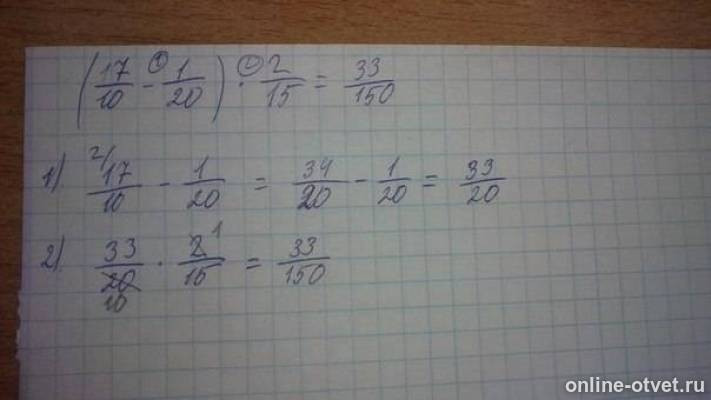 (17/10 - 1/20) · 2/15 = 33/150
1). 17/10 - 1/20 = 34/20 - 1/20 = 33/20
2). 33/20 · 2/15 = 33/150
online-otvet.ru